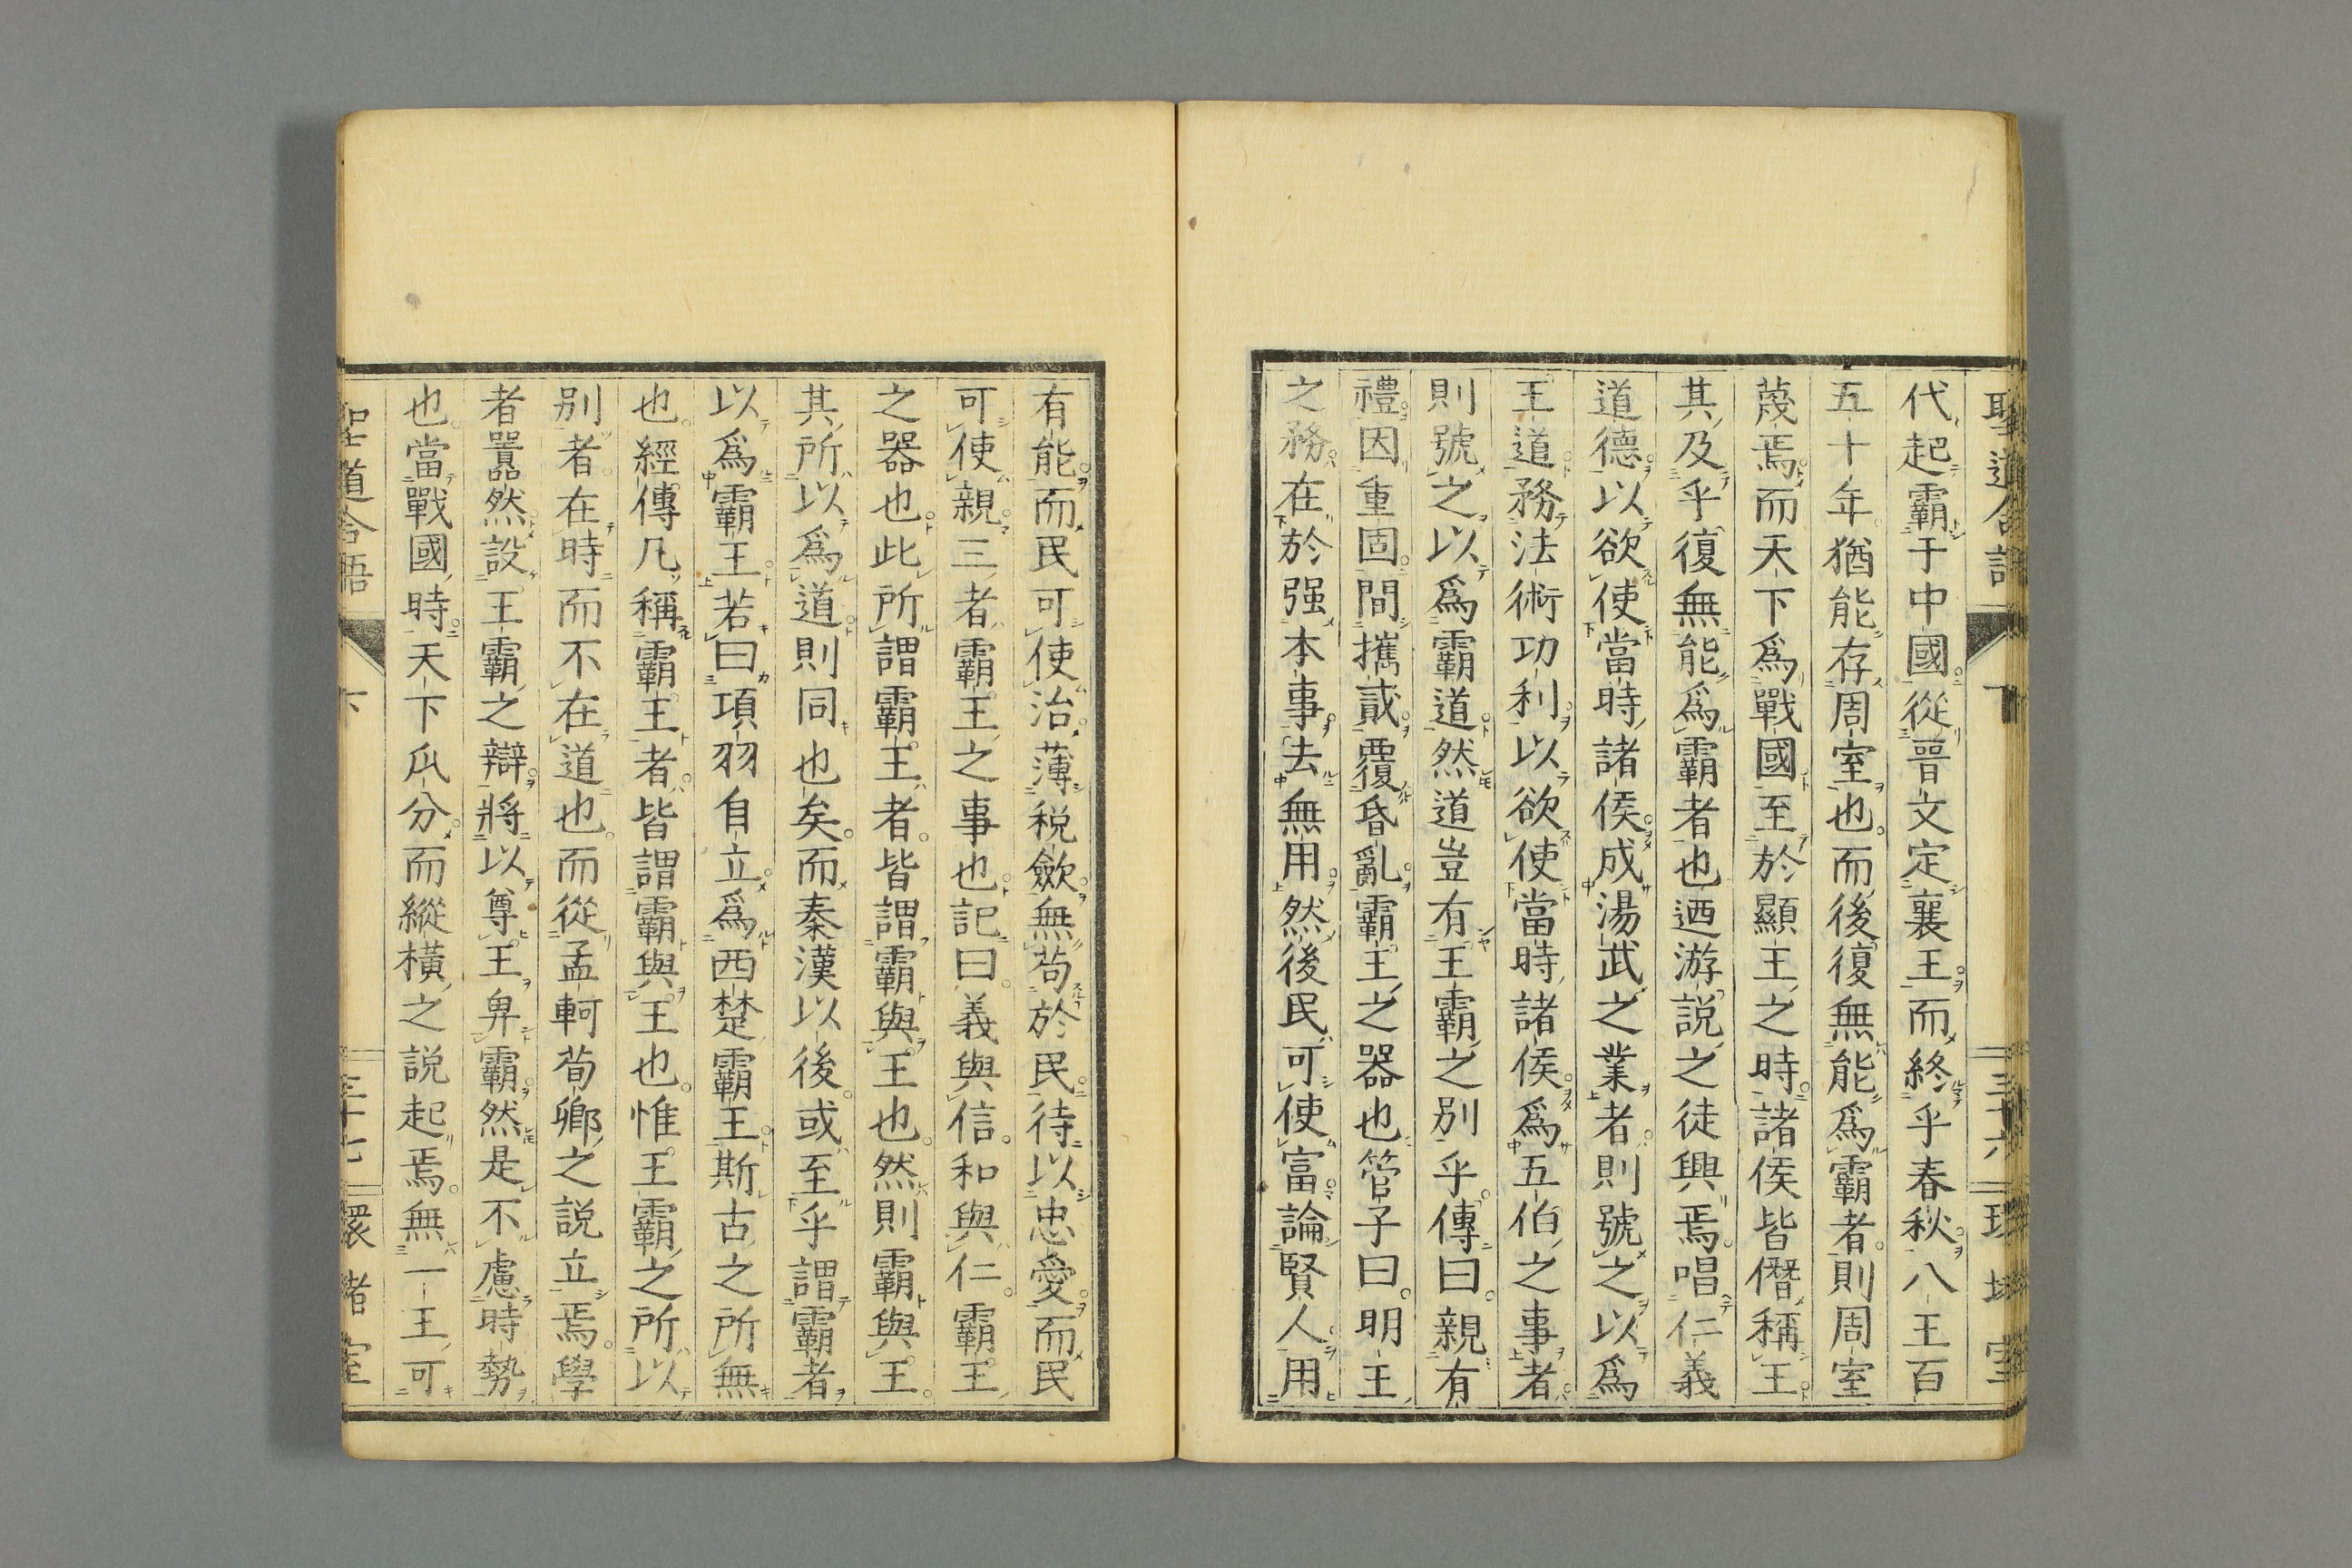 代起霸于中國從晉文定襄王而終乎春秋八王百
五十年猶能存周室也而後復無能爲霸者則周室
蔑焉而天下爲戰國至於顯王之時諸侯皆僭稱王
其及乎復無能爲霸者也迺游說之徒興焉唱仁義
道德以欲使當時諸侯成湯武之業者則號之以爲
王道務法術功利以欲使當時諸侯爲五伯之事者
則號之以爲霸道然道豈有王霸之別乎傳曰親有
禮因重固間攜貳覆昏亂霸王之器也管子曰明王
之務在於强本事去無用然後民可使富論賢人用
有能而民可使治薄稅歛無苟於民待以忠愛而民
可使親三者霸王之事也記曰義與信和與仁霸王
之器也此所謂霸王者皆謂霸與王也然則霸與王
其所以爲道則同也矣而秦漢以後或至乎謂霸者
以爲霸王若曰項羽自立爲西楚霸王斯古之所無
也經傳凡稱霸王者皆謂霸與王也惟王霸之所以
別者在時而不在道也而從孟軻荀卿之說立焉學
者囂然設王霸之辯將以尊王卑霸然是不慮時勢
也當戰國時天下瓜分而縱橫之說起焉無一王可
聖道合語 下 三十七 環堵室